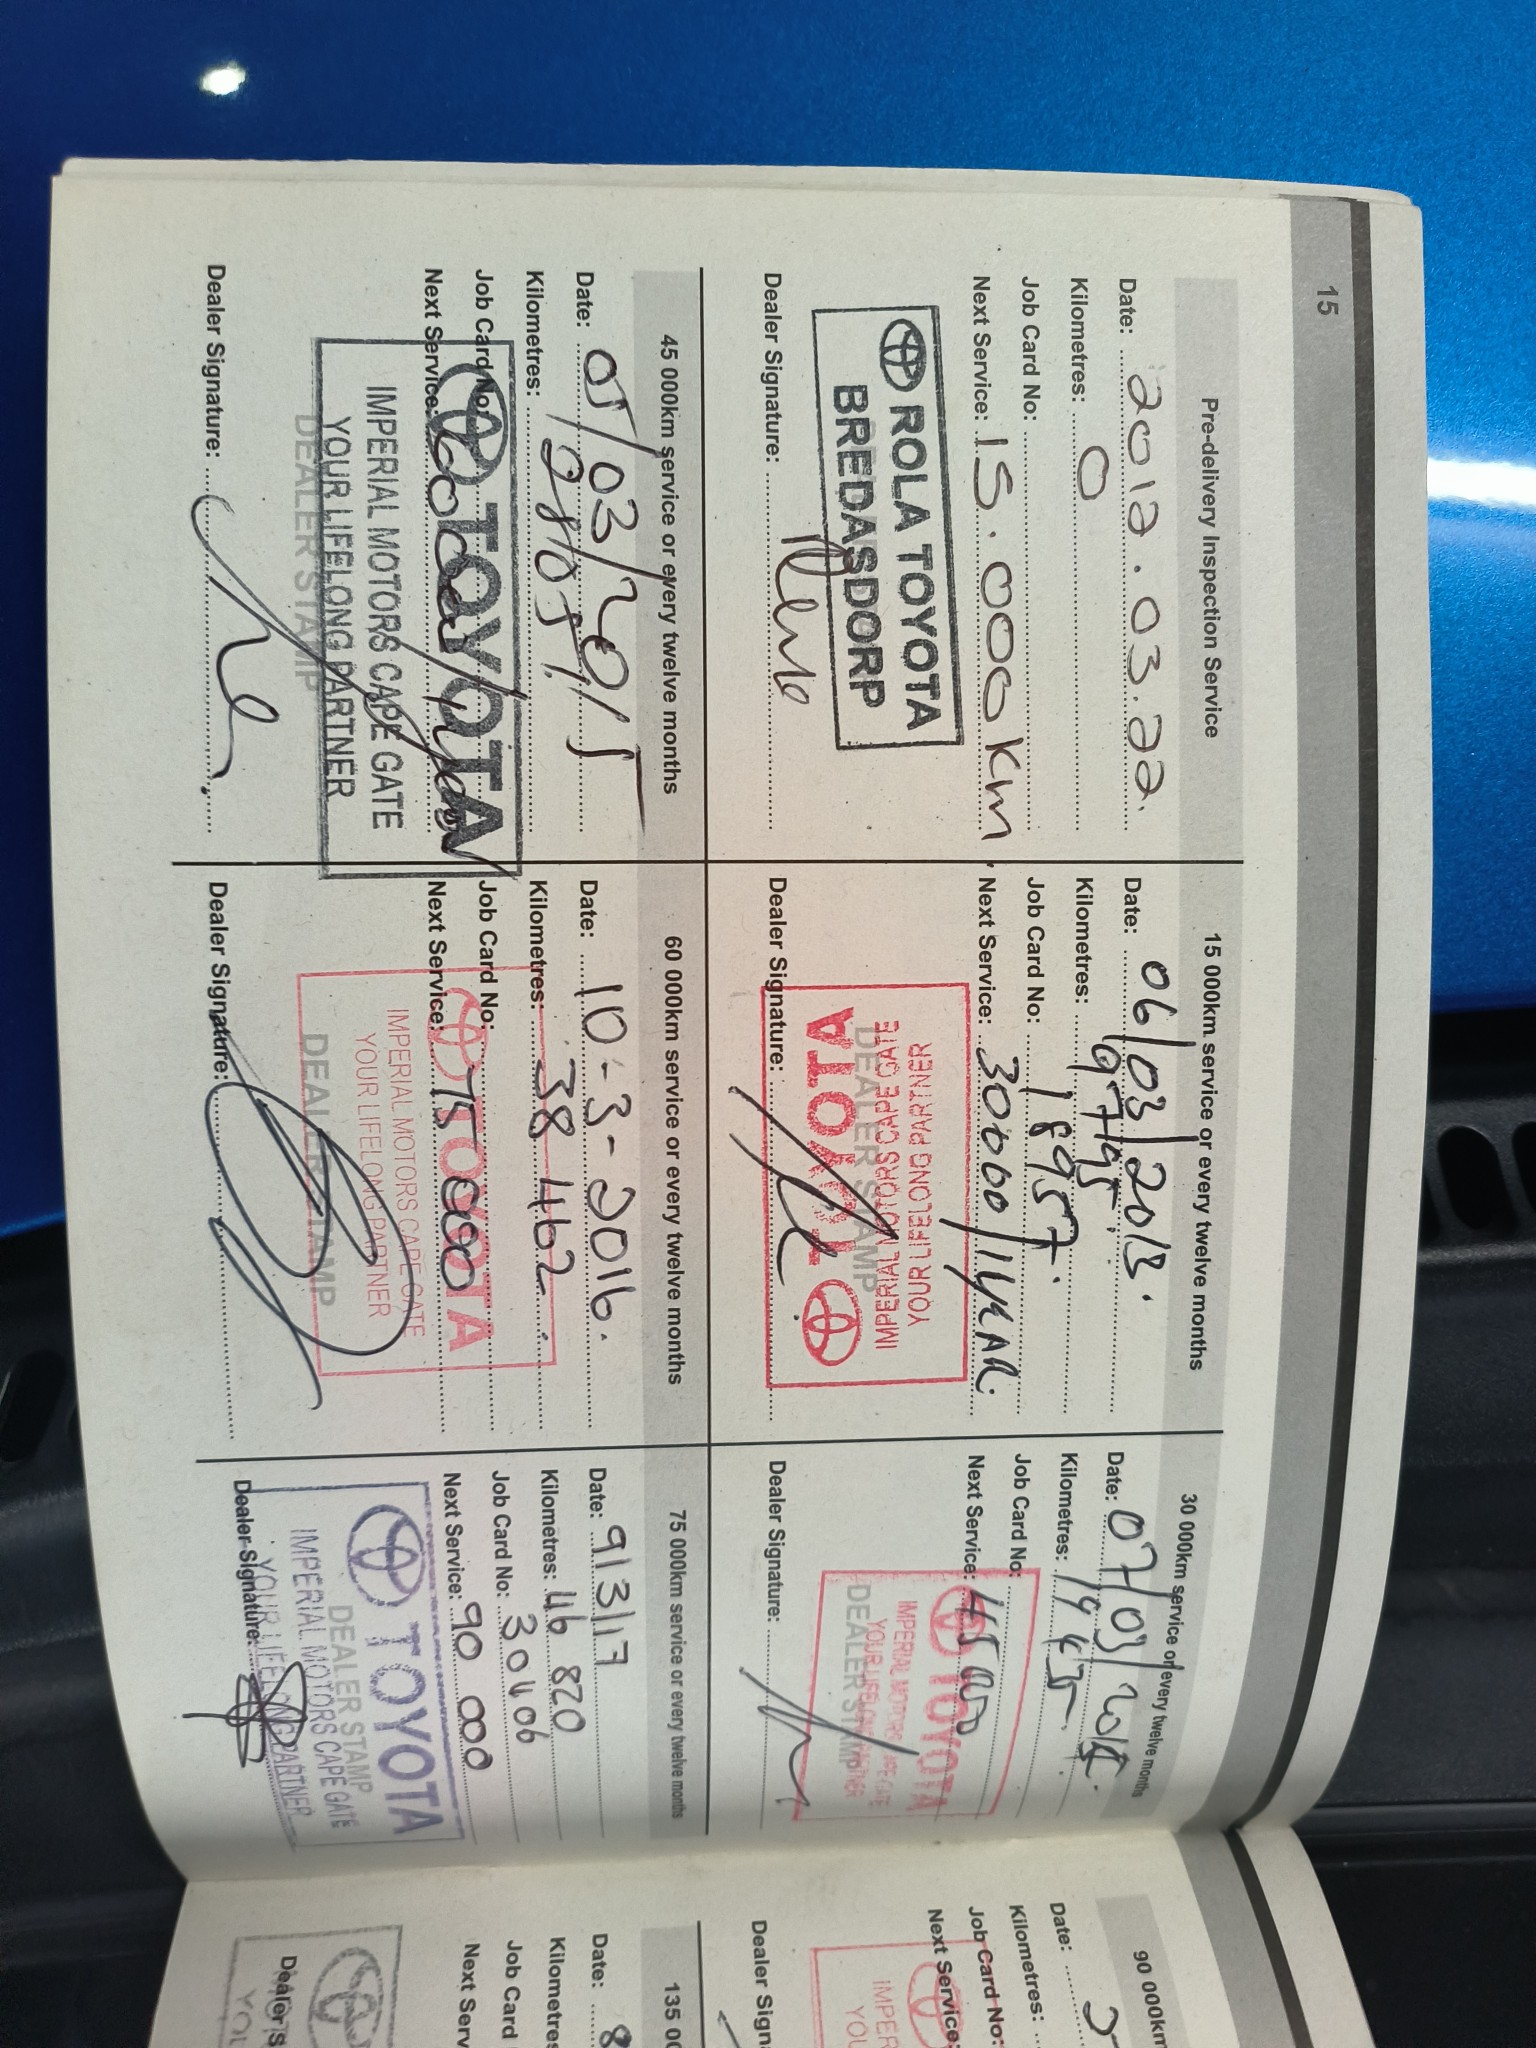 15
Pre-delivery Inspection Service
Date: 2012.03.22.
Kilometres: 0
Job Card No:
Next Service: 15.000 Km
ROLA TOYOTA
BREDASDORP
Dealer Signature:
15 000km service or every twelve months
Date: 06/03/2013.
Kilometres: 9795.
Job Card No: 18957.
Next Service: 30000/1YEAR.
YOUR LIFELONG PARTNER
IMPERIAL MOTORS CAPE GATE
DEALER STAMP
TOYOTA
Dealer Signature:
30 000km service or every twelve months
Date: 07/03/2014.
Kilometres: 19435.
Job Card No:
Next Service: 45000
TOYOTA
IMPERIAL MOTORS CAPE GATE
YOUR LIFELONG PARTNER
DEALER STAMP
Dealer Signature:
45 000km service or every twelve months
Date: 05/03/2015
Kilometres: 28051
Job Card No:
Next Service:
TOYOTA
IMPERIAL MOTORS CAPE GATE
YOUR LIFELONG PARTNER
DEALER STAMP
Dealer Signature:
60 000km service or every twelve months
Date: 10-3-2016.
Kilometres: 38 462
Job Card No:
Next Service: 75 000
TOYOTA
IMPERIAL MOTORS CAPE GATE
YOUR LIFELONG PARTNER
DEALER STAMP
Dealer Signature:
75 000km service or every twelve months
Date: 9/3/17
Kilometres: 46 820
Job Card No: 30406
Next Service: 90 000
TOYOTA
DEALER STAMP
IMPERIAL MOTORS CAPE GATE
YOUR LIFELONG PARTNER
Dealer Signature:
90 000km
Date:
Kilometres:
Job Card No:
Next Service:
IMPER
YOU
Dealer Signa
135 00
Date: 8
Kilometres
Job Card
Next Serv
Dealer S
YOU